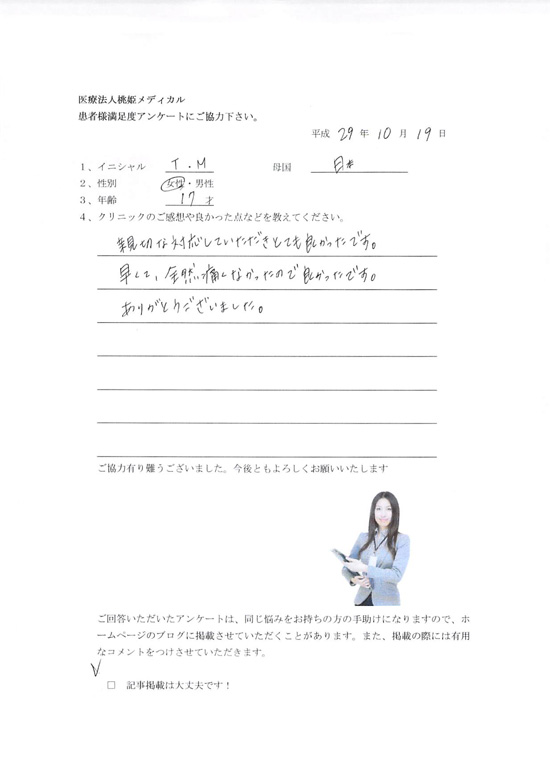 医療法人桃姫メディカル
患者様満足度アンケートにご協力下さい。
平成 29 年 10 月 19 日
1、イニシャル T.M 母国 日本
2、性別 女性・男性
3、年齢 17 才
4、クリニックのご感想や良かった点などを教えてください。
親切な対応していただきとても良かったです。
早くて、全然痛くなかったので良かったです。
ありがとうございました。
ご協力有り難うございました。今後ともよろしくお願いいたします
ご回答いただいたアンケートは、同じ悩みをお持ちの方の手助けになりますので、ホ
ームページのブログに掲載させていただくことがあります。また、掲載の際には有用
なコメントをつけさせていただきます。
□ 記事掲載は大丈夫です！